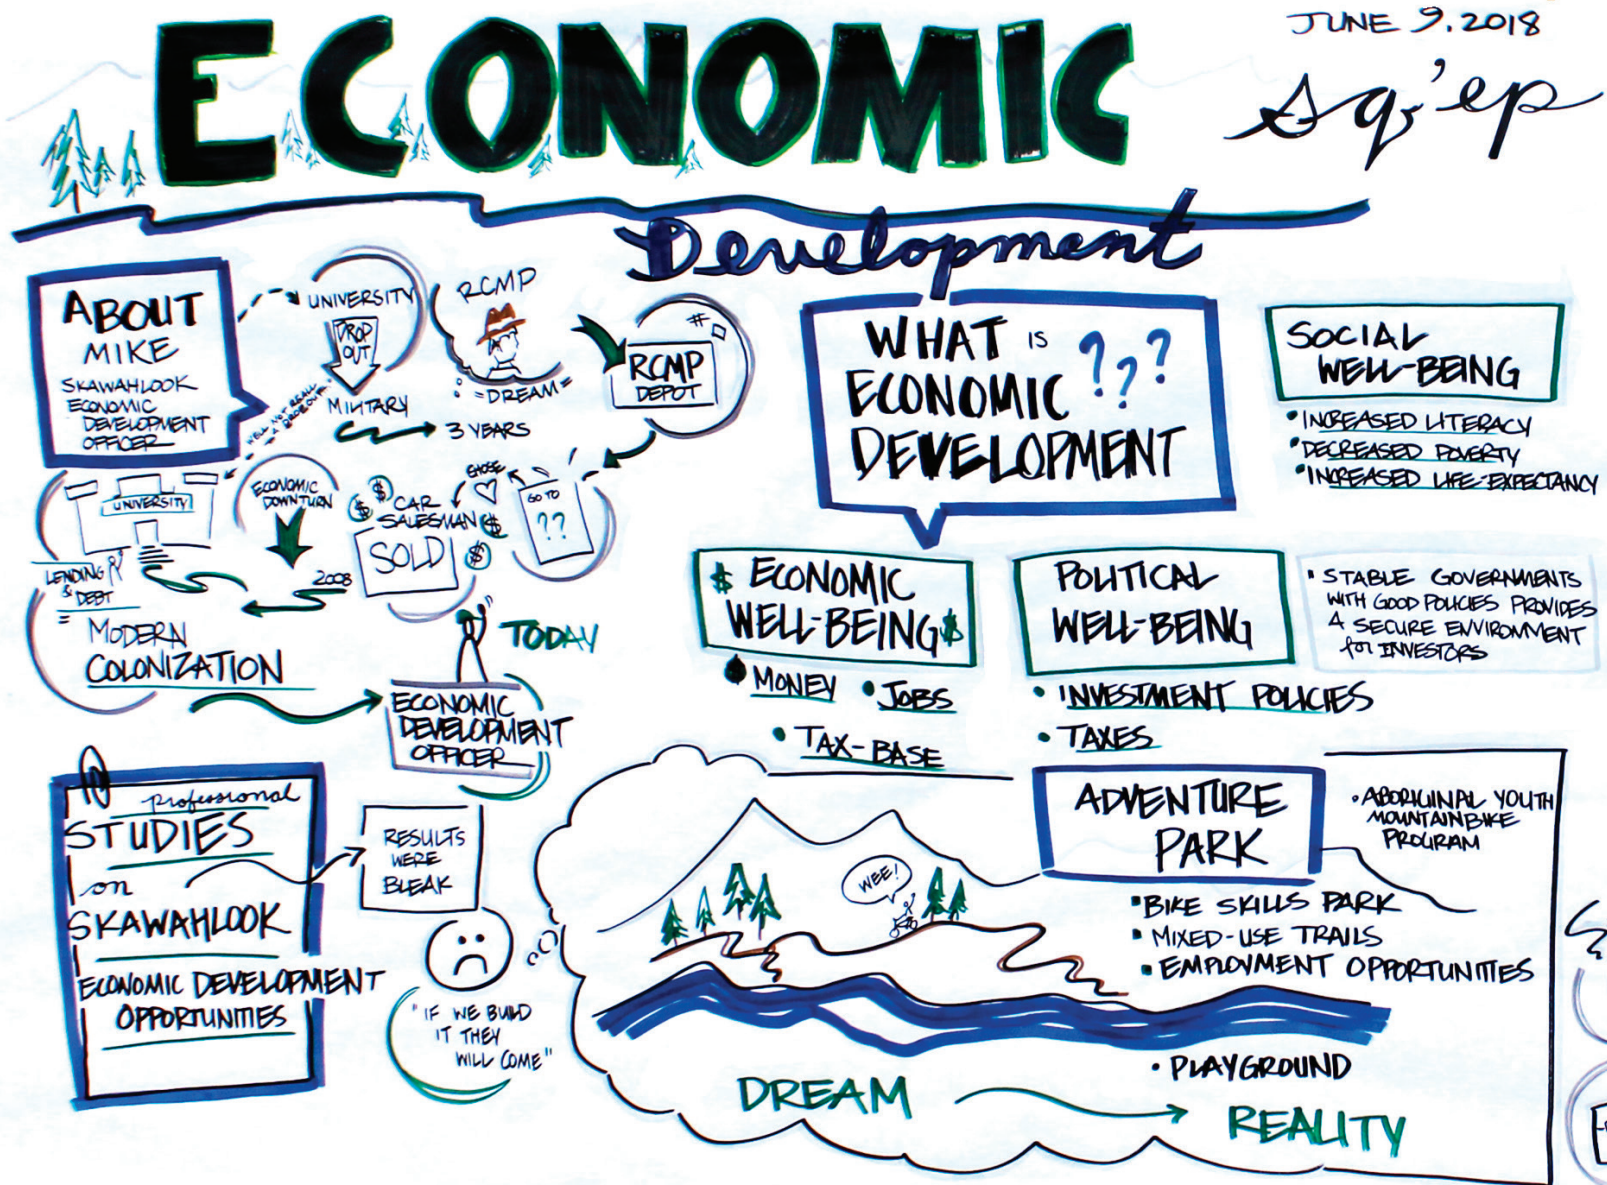 JUNE 9. 2018
sq'ep
ECONOMIC
Development
ABOUT
MIKE
SKAWAHLOOK
ECONOMIC
DEVELOPMENT
OFFICER
UNIVERSITY
DROP
OUT
WELL NOT REALLY
A DROPOUT
MILITARY
3 YEARS
RCMP
=DREAM=
RCMP
DEPOT
GO TO
??
CHOSE
CAR
SALESMAN
SOLD
$
$
$
$
2008
ECONOMIC
DOWNTURN
UNIVERSITY
LENDING
&
DEBT
=
MODERN
COLONIZATION
TODAY
ECONOMIC
DEVELOPMENT
OFFICER
WHAT IS
ECONOMIC
DEVELOPMENT
???
SOCIAL
WELL-BEING
• INCREASED LITERACY
• DECREASED POVERTY
• INCREASED LIFE-EXPECTANCY
$ ECONOMIC
WELL-BEING $
• MONEY • JOBS
• TAX-BASE
POLITICAL
WELL-BEING
• INVESTMENT POLICIES
• TAXES
• STABLE GOVERNMENTS
WITH GOOD POLICIES PROVIDES
A SECURE ENVIRONMENT
for INVESTORS
10
professional
STUDIES
on
SKAWAHLOOK
ECONOMIC DEVELOPMENT
OPPORTUNITIES
RESULTS
WERE
BLEAK
"IF WE BUILD
IT THEY
WILL COME"
WEE!
ADVENTURE
PARK
• ABORIGINAL YOUTH
MOUNTAIN BIKE
PROGRAM
• BIKE SKILLS PARK
• MIXED-USE TRAILS
• EMPLOYMENT OPPORTUNITIES
• PLAYGROUND
DREAM
REALITY